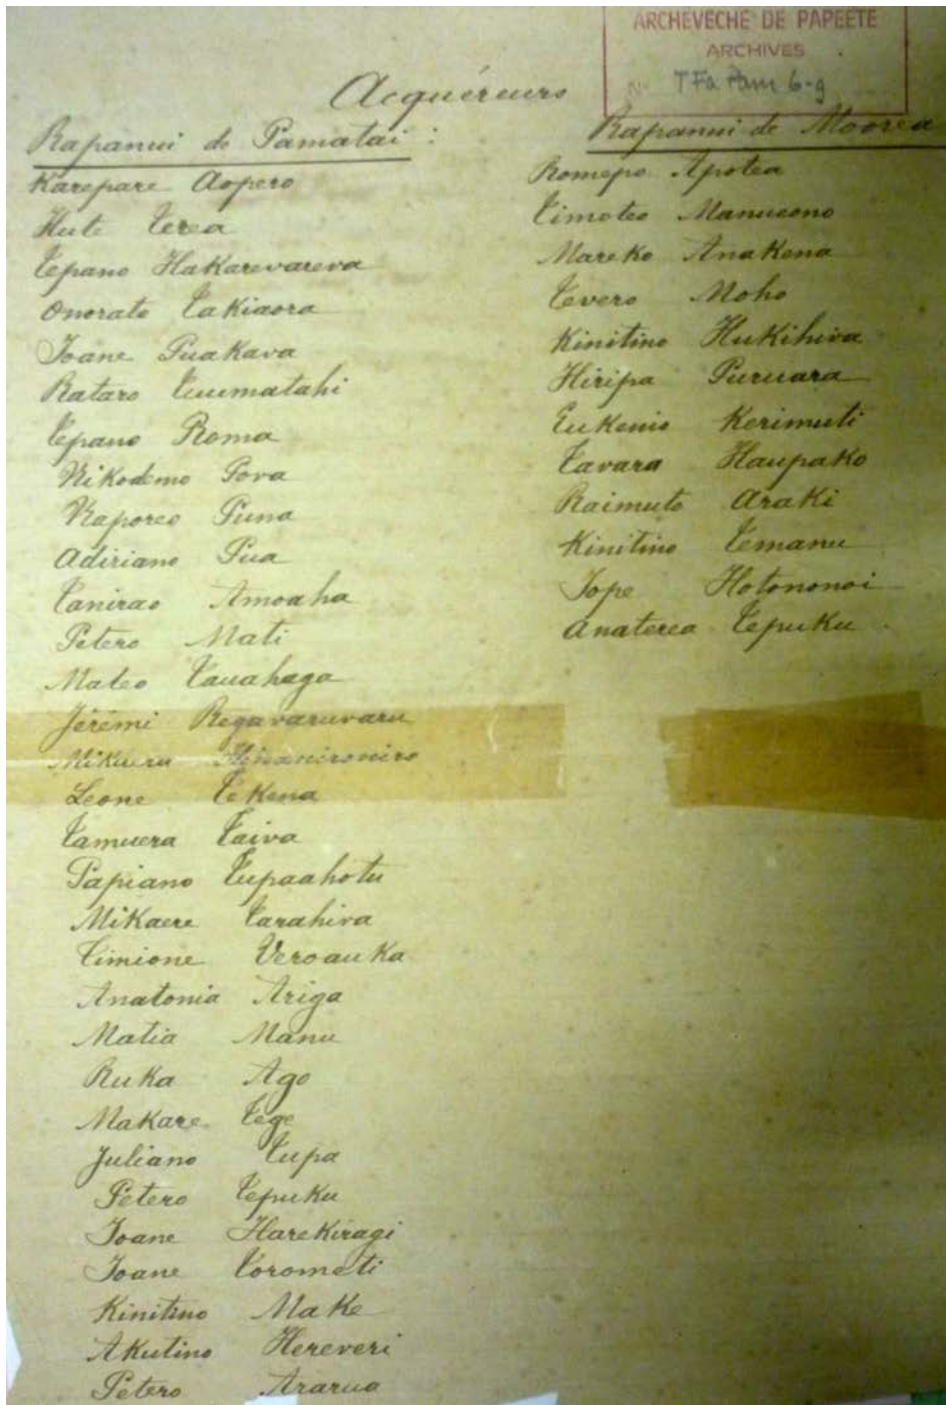 ARCHEVECHE DE PAPEETE
ARCHIVES
N° TFa Pam 6-9
Acquéreurs
Rapanui de Pamatai :
Karepare Aopero
Hute Terea
Tepano Hakarevareva
Onorato Takiaora
Ioane Puakava
Rataro Tuumatahi
Tepano Roma
Nikodemo Pova
Kaporeo Puna
Adiriano Pua
Tanirao Amoaha
Petero Mati
Mateo Tauahaga
Jérémi Regavaruvaru
Mikueru Hinanironiro
Leone Te Kena
Tamuera Taiva
Papiano Tupaahotu
Mikaere Tarahiva
Timione Veroauka
Anatonia Ariga
Matia Manu
Ruka Ago
Makare Tege
Juliano Tupa
Petero Tepuku
Ioane Harekiragi
Ioane Torometi
Kinitino Make
Akutino Hereveri
Petero Ararua
Rapanui de Moorea
Romepo Apotea
Timoteo Manueono
Mareko Anakena
Tevero Moho
Kinitino Hukihiva
Hiripa Puruara
Eukenio Kerimuti
Tavara Haupako
Raimuto Araki
Kinitino Temanu
Iope Hotononoi
Anaterea Tepuku